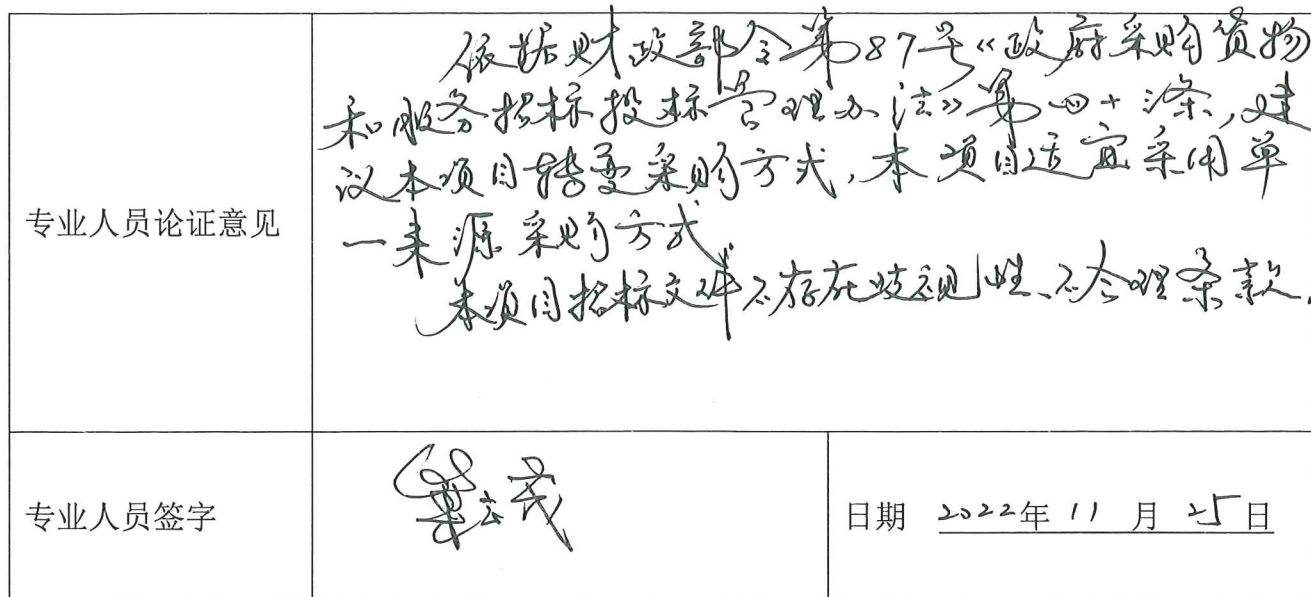 专业人员论证意见
依据财政部令第87号《政府采购货物
和服务招标投标管理办法》第四十三条,建
议本项目转变采购方式,本项目适宜采用单
一来源采购方式
本项目招标文件不存在歧视性、不合理条款.
专业人员签字
日期 2022年11月25日